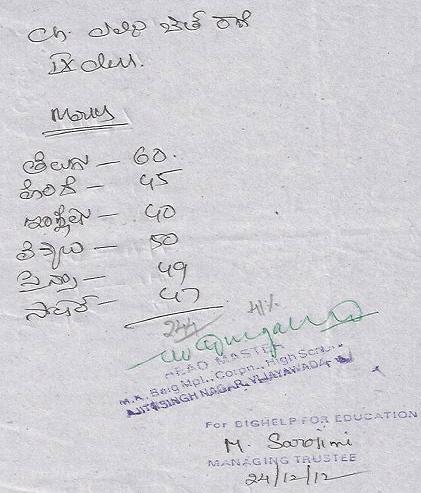 Ch.
IX class.
Marks
తెలుగు – 60.
హిందీ – 45
ఇంగ్లీషు – 40
లెక్కలు – 50
సైన్సు – 49
సోషల్ – 47
244 41%
HEAD MASTER
M.K. Baig Mpl., Corpn., High School
AJITSINGH NAGAR, VIJAYAWADA
For BIGHELP FOR EDUCATION
M. Sarojini
MANAGING TRUSTEE
24/12/12